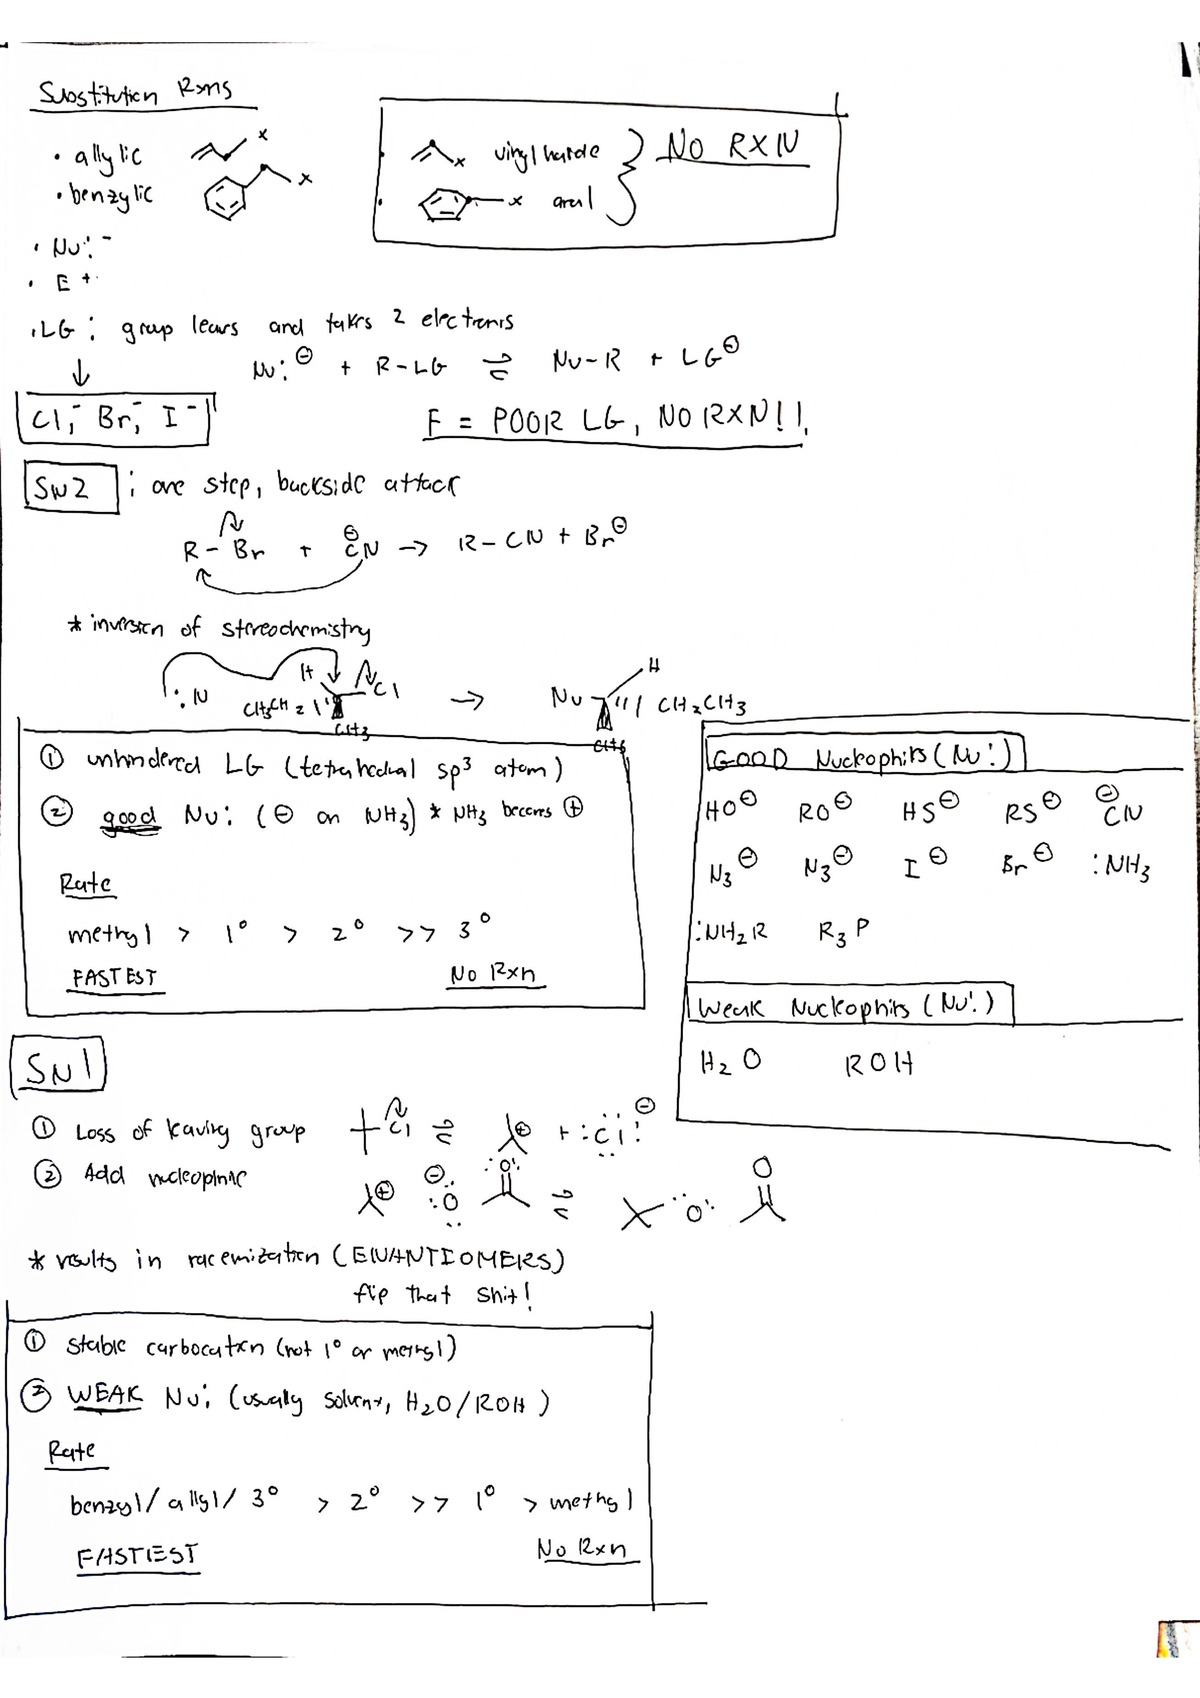 Substitution Rxns
• allylic x
• benzylic x
x vinyl halide } NO RXN
x aryl
• Nu:⁻
• E⁺
• LG: group leaves and takes 2 electrons
Nu:⊖ + R-LG ⇌ Nu-R + LG⊖
↓
Cl⁻, Br⁻, I⁻
F = POOR LG, NO RXN!!
SN2 : one step, backside attack
R-Br + ⊖CN → R-CN + Br⊖
* inversion of stereochemistry
:N H Cl CH3CH2 CH3 → Nu H CH2CH3 CH3
① unhindered LG (tetrahedral sp³ atom)
② good Nu: (⊖ on NH3) * NH3 becomes ⊕
Rate
methyl > 1° > 2° >> 3°
FASTEST No Rxn
GOOD Nucleophils (Nu:)
HO⊖ RO⊖ HS⊖ RS⊖ ⊖CN
N3⊖ N3⊖ I⊖ Br⊖ :NH3
:NH2R R3P
Weak Nucleophils (Nu:)
H2O ROH
SN1
① Loss of leaving group Cl ⇌ ⊕ + :Cl:⊖
② Add nucleophile ⊕ ⊖:O O ⇌ O O
* results in racemization (ENANTIOMERS)
flip that shit!
① stable carbocation (not 1° or methyl)
② WEAK Nu: (usually solvent, H2O/ROH)
Rate
benzyl/allyl/3° > 2° >> 1° > methyl
FASTEST No Rxn